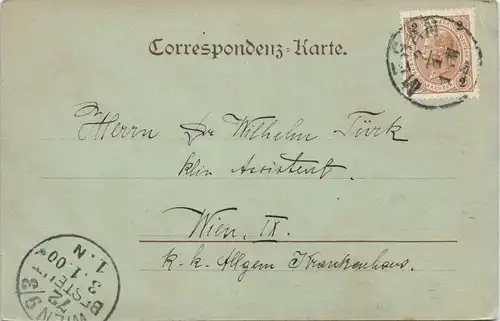 Correspondenz-Karte.
Herrn Dr Wilhelm Türk
klin Assistent
Wien, IX.
k. k. Allgem Krankenhaus.
WIEN 9/3
72
BESTELLT
3.1.00
1. N